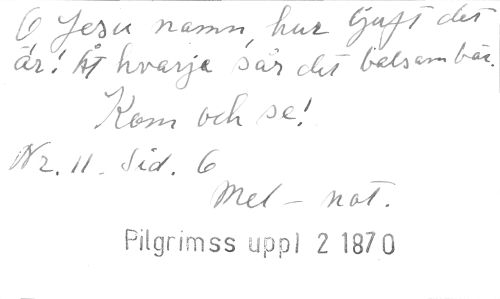 O Jesu namn, hur ljuft det
är! Åt hvarje sår det balsam bär.
Kom och se!
Nr. 11. Sid. 6
Mel - not.
Pilgrimss uppl 2 1870